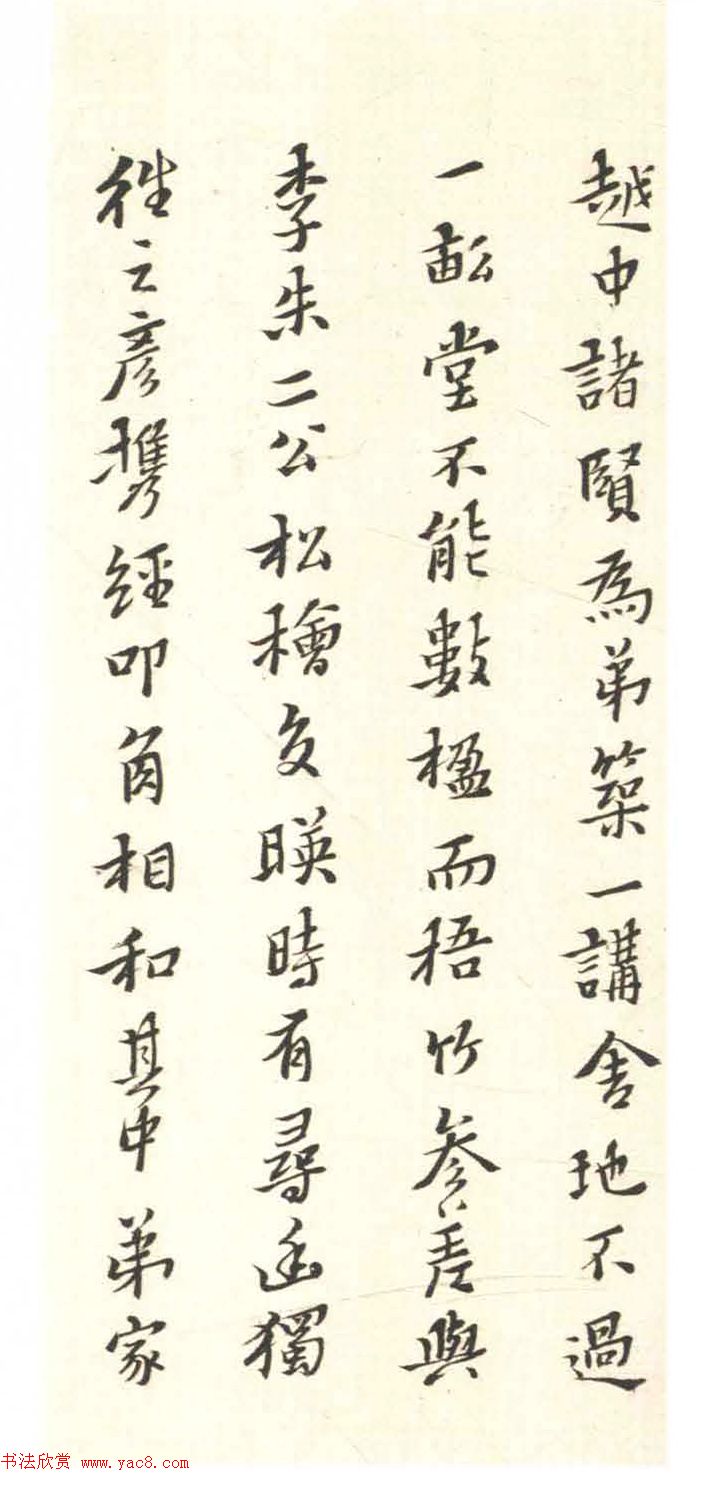 越中諸賢為弟築一講舍地不過
一畝堂不能數楹而梧竹參差與
李朱二公松檜交暎時有尋幽獨
徃之彥攜經叩角相和其中弟家
书法欣赏 www.yac8.com